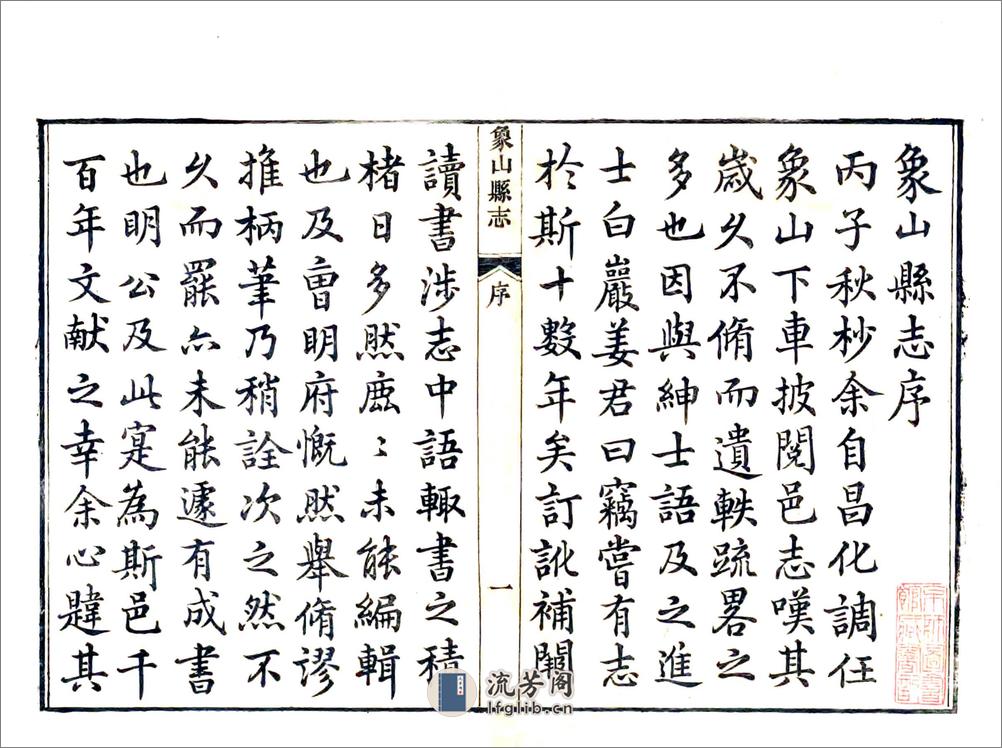 象山縣志序
丙子秋杪余自昌化調任
象山下車披閱邑志嘆其
歲久不脩而遺軼疏畧之
多也因與紳士語及之進
士白巖姜君曰竊嘗有志
於斯十數年矣訂訛補闕
象山縣志
序
一
讀書涉志中語輙書之積
楮日多然鹿〻未能編輯
也及曹明府慨然舉脩謬
推柄筆乃稍詮次之然不
久而罷亦未能遽有成書
也明公及此寔為斯邑千
百年文献之幸余心韙其
流芳閣
lfglib.cn